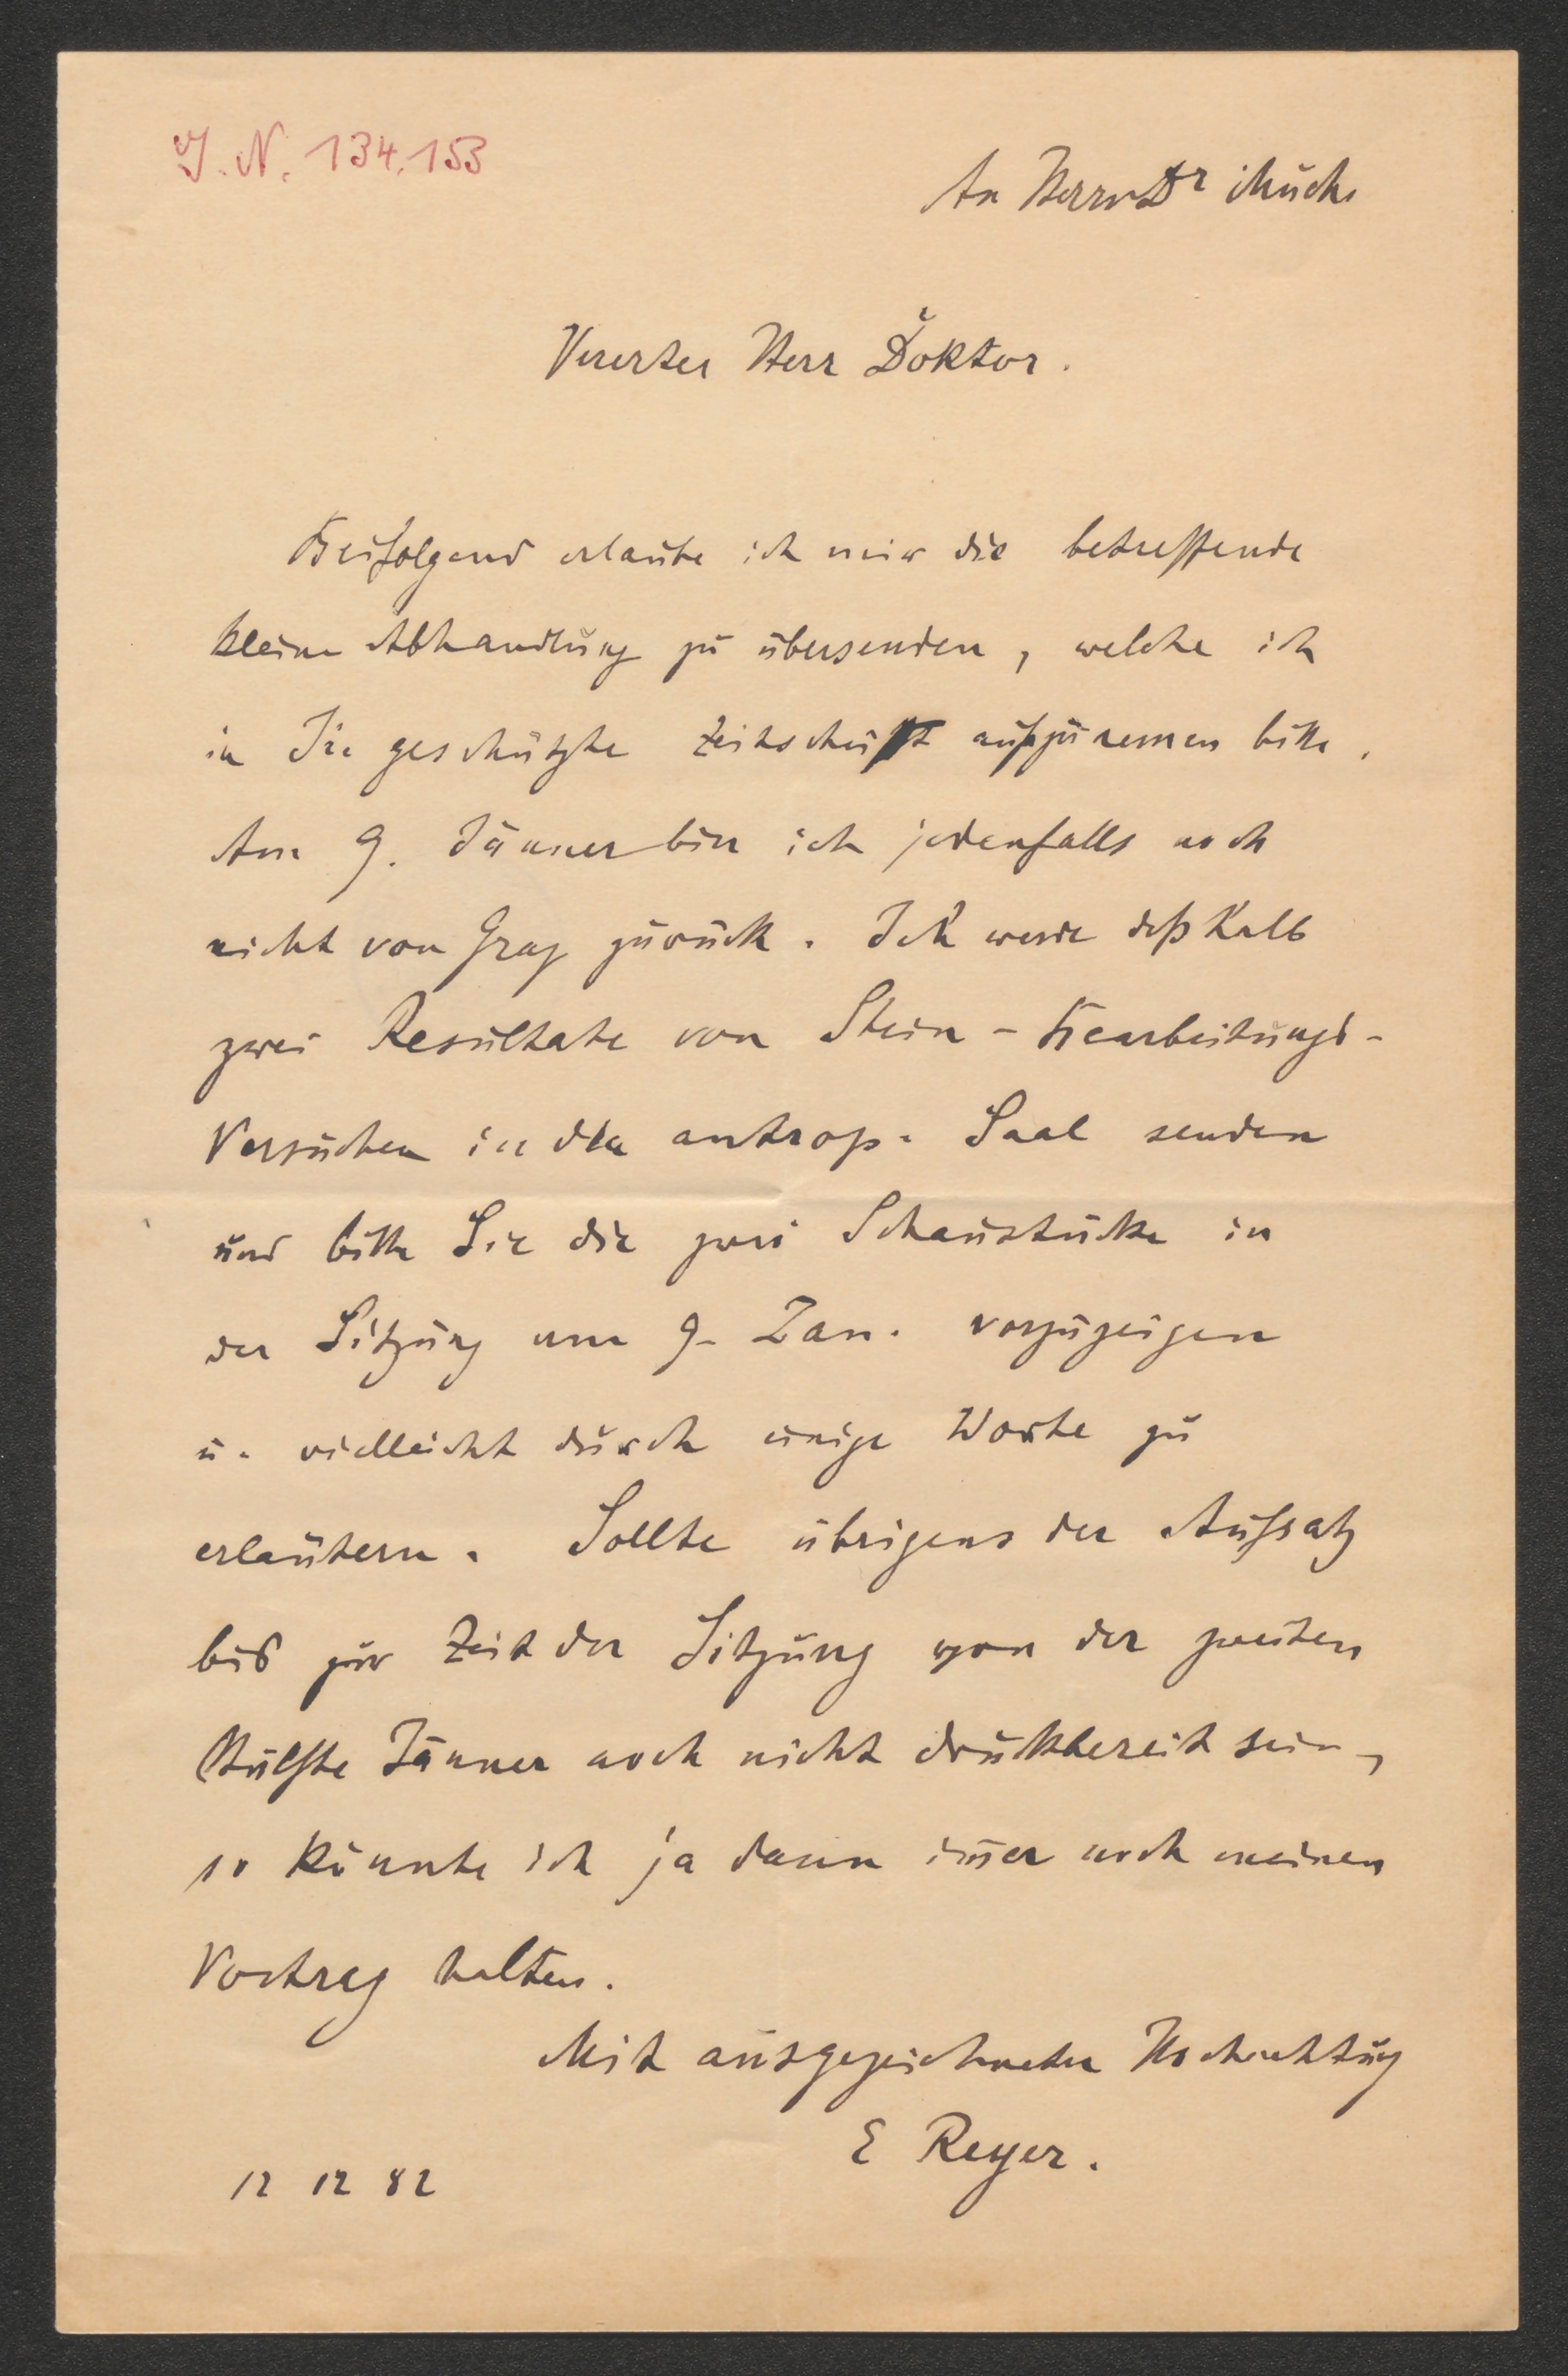 J. N. 134.153
An Herrn Dr Much
Vererter Herr Doktor.
Beifolgend erlaube ich mir die betreffende
kleine Abhandlung zu übersenden, welche ich
in Ire geschätzte Zeitschrift aufzunemen bitte.
Am 9. Jänner bin ich jedenfalls noch
nicht von Graz zurück. Ich werde deßhalb
zwei Resultate von Stein-Bearbeitungs-
Versuchen in den antrop. Saal senden
und bitte Sie die zwei Schaustücke in
der Sitzung am 9. Jan. vorzuzeigen
u. vielleicht durch einige Worte zu
erläutern. Sollte übrigens der Aufsatz
bis zur Zeit der Sitzung von der zweiten
Hälfte Jänner noch nicht druckbereit sein,
so könnte ich ja dann im̄er noch meinen
Vortrag halten.
Mit ausgezeichneter Hochachtung
E Reyer.
12 12 82